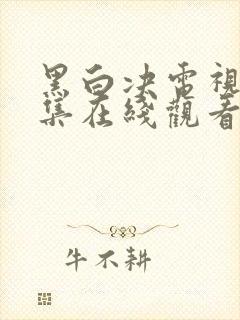 黑白决電視
集在綫觀看
牛不耕